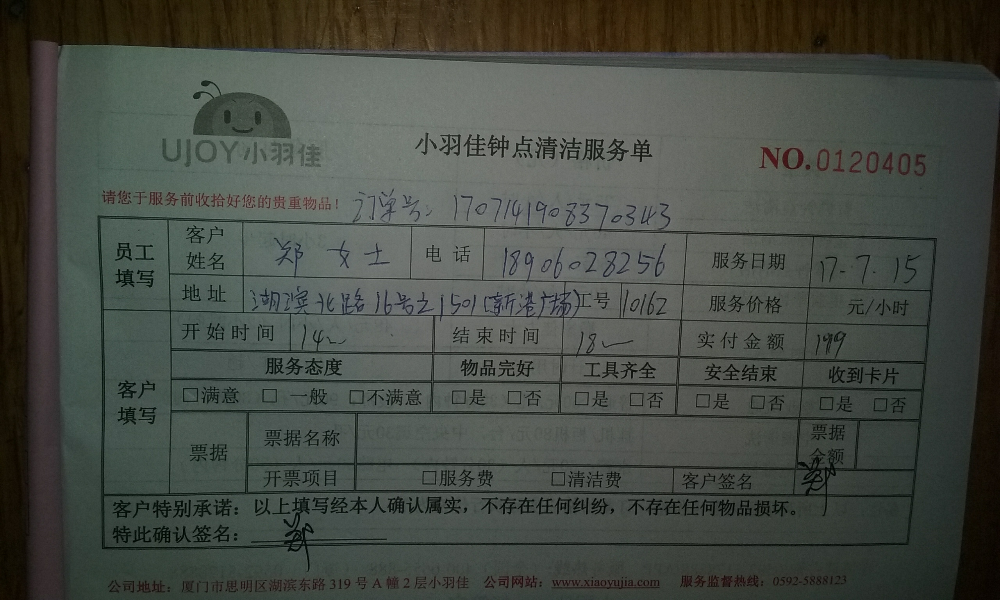 UJOY小羽佳
小羽佳钟点清洁服务单
NO.0120405
请您于服务前收拾好您的贵重物品！ 订单号：1707141908370343
员工填写 客户姓名 郑女士 电话 18906028256 服务日期 17-7.15
地址 湖滨北路16号之1501(新港广场) 工号 10162 服务价格 元/小时
客户填写 开始时间 14 结束时间 18 实付金额 199
服务态度 物品完好 工具齐全 安全结束 收到卡片
□满意 □一般 □不满意 □是 □否 □是 □否 □是 □否 □是 □否
票据 票据名称 票据金额
开票项目 □服务费 □清洁费 客户签名 郑
客户特别承诺：以上填写经本人确认属实，不存在任何纠纷，不存在任何物品损坏。
特此确认签名： 郑
公司地址：厦门市思明区湖滨东路319号A幢2层小羽佳 公司网站：www.xiaoyujia.com 服务监督热线：0592-5888123